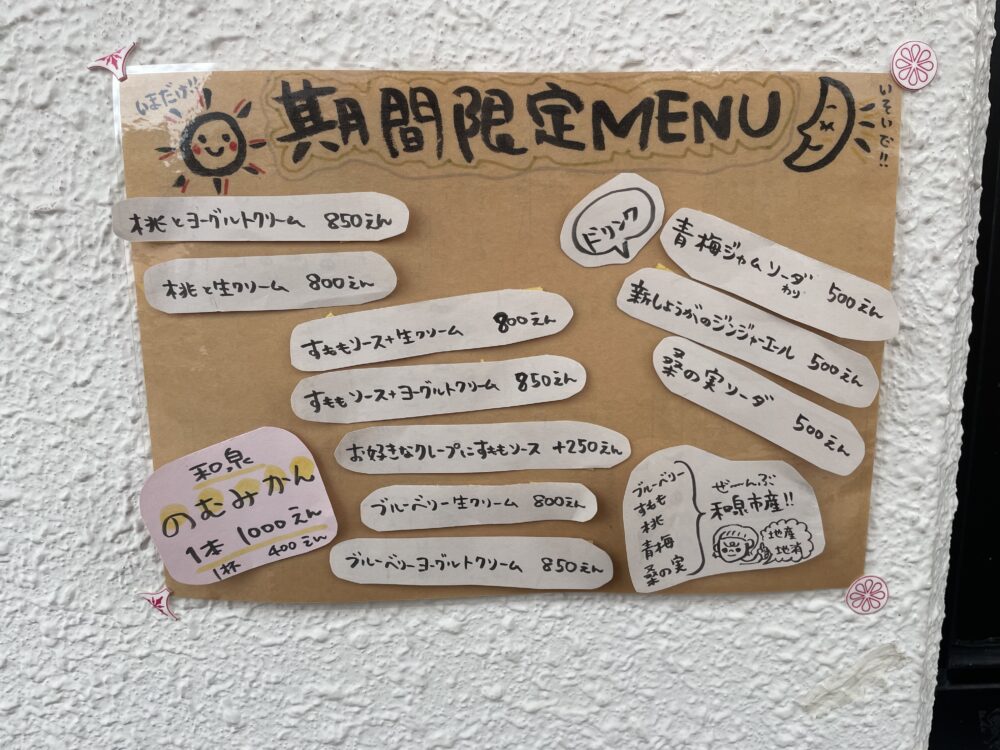 いまだけ!!
期間限定MENU
いそいで!!
桃とヨーグルトクリーム 850えん
桃と生クリーム 800えん
すももソース+生クリーム 800えん
すももソース+ヨーグルトクリーム 850えん
お好きなクレープにすももソース +250えん
ブルーベリー生クリーム 800えん
ブルーベリーヨーグルトクリーム 850えん
ドリンク
青梅ジャムソーダわり 500えん
新しょうがのジンジャーエール 500えん
桑の実ソーダ 500えん
和泉
のむみかん
1本 1000えん
1杯 400えん
ブルーベリー
すもも
桃
青梅
桑の実
ぜーんぶ
和泉市産!!
地産
地消